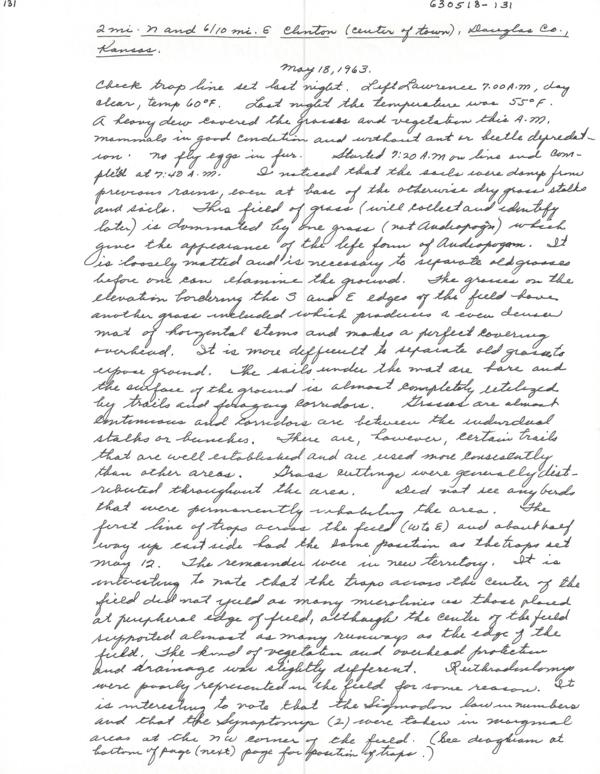 131
630518-131
2 mi. N and 6/10 mi. E Clinton (center of town), Douglas Co.,
Kansas.
May 18, 1963.
Check trap line set last night. Left Lawrence 7:00 A.M., day
clear, temp 60°F. Last night the temperature was 55°F.
A heavy dew covered the grasses and vegetation this A.M.
mammals in good condition and without ant or beetle depredat-
ion. No fly eggs in fur. Started 7:20 A.M on line and com-
pleted at 7:40 A.M. I noticed that the soils were damp from
previous rains, even at base of the otherwise dry grass stalks
and soils. This field of grass (will collect and identify
later) is dominated by one grass (not Andropogon) which
gives the appearance of the life form of Andropogon. It
is loosely matted and is necessary to separate old grasses
before one can examine the ground. The grasses on the
elevation bordering the S and E edges of the field have
another grass included which produces a even denser
mat of horizontal stems and makes a perfect covering
overhead. It is more difficult to separate old grass to
expose ground. The soils under the mat are bare and
the surface of the ground is almost completely utilized
by trails and foraging corridors. Grasses are almost
continuous and corridors are between the individual
stalks or bunches. There are, however, certain trails
that are well established and are used more consistently
than other areas. Grass cuttings were generally dist-
ributed throughout the area. Did not see any birds
that were permanently inhabiting the area. The
first line of traps across the field (W to E) and about half
way up east side had the same position as the traps set
May 12. The remainder were in new territory. It is
interesting to note that the traps across the center of the
field did not yield as many microtines as those placed
at peripheral edge of field, although the center of the field
supported almost as many runways as the edge of the
field. The kind of vegetation and overhead protection
and drainage was slightly different. Reithrodontomys
were poorly represented in the field for some reason. It
is interesting to note that the Sigmodon low in numbers
and that the Synaptomys (2) were taken in marginal
areas at the NW corner of the field. (See diagram at
bottom of page (next) page for position of traps.)